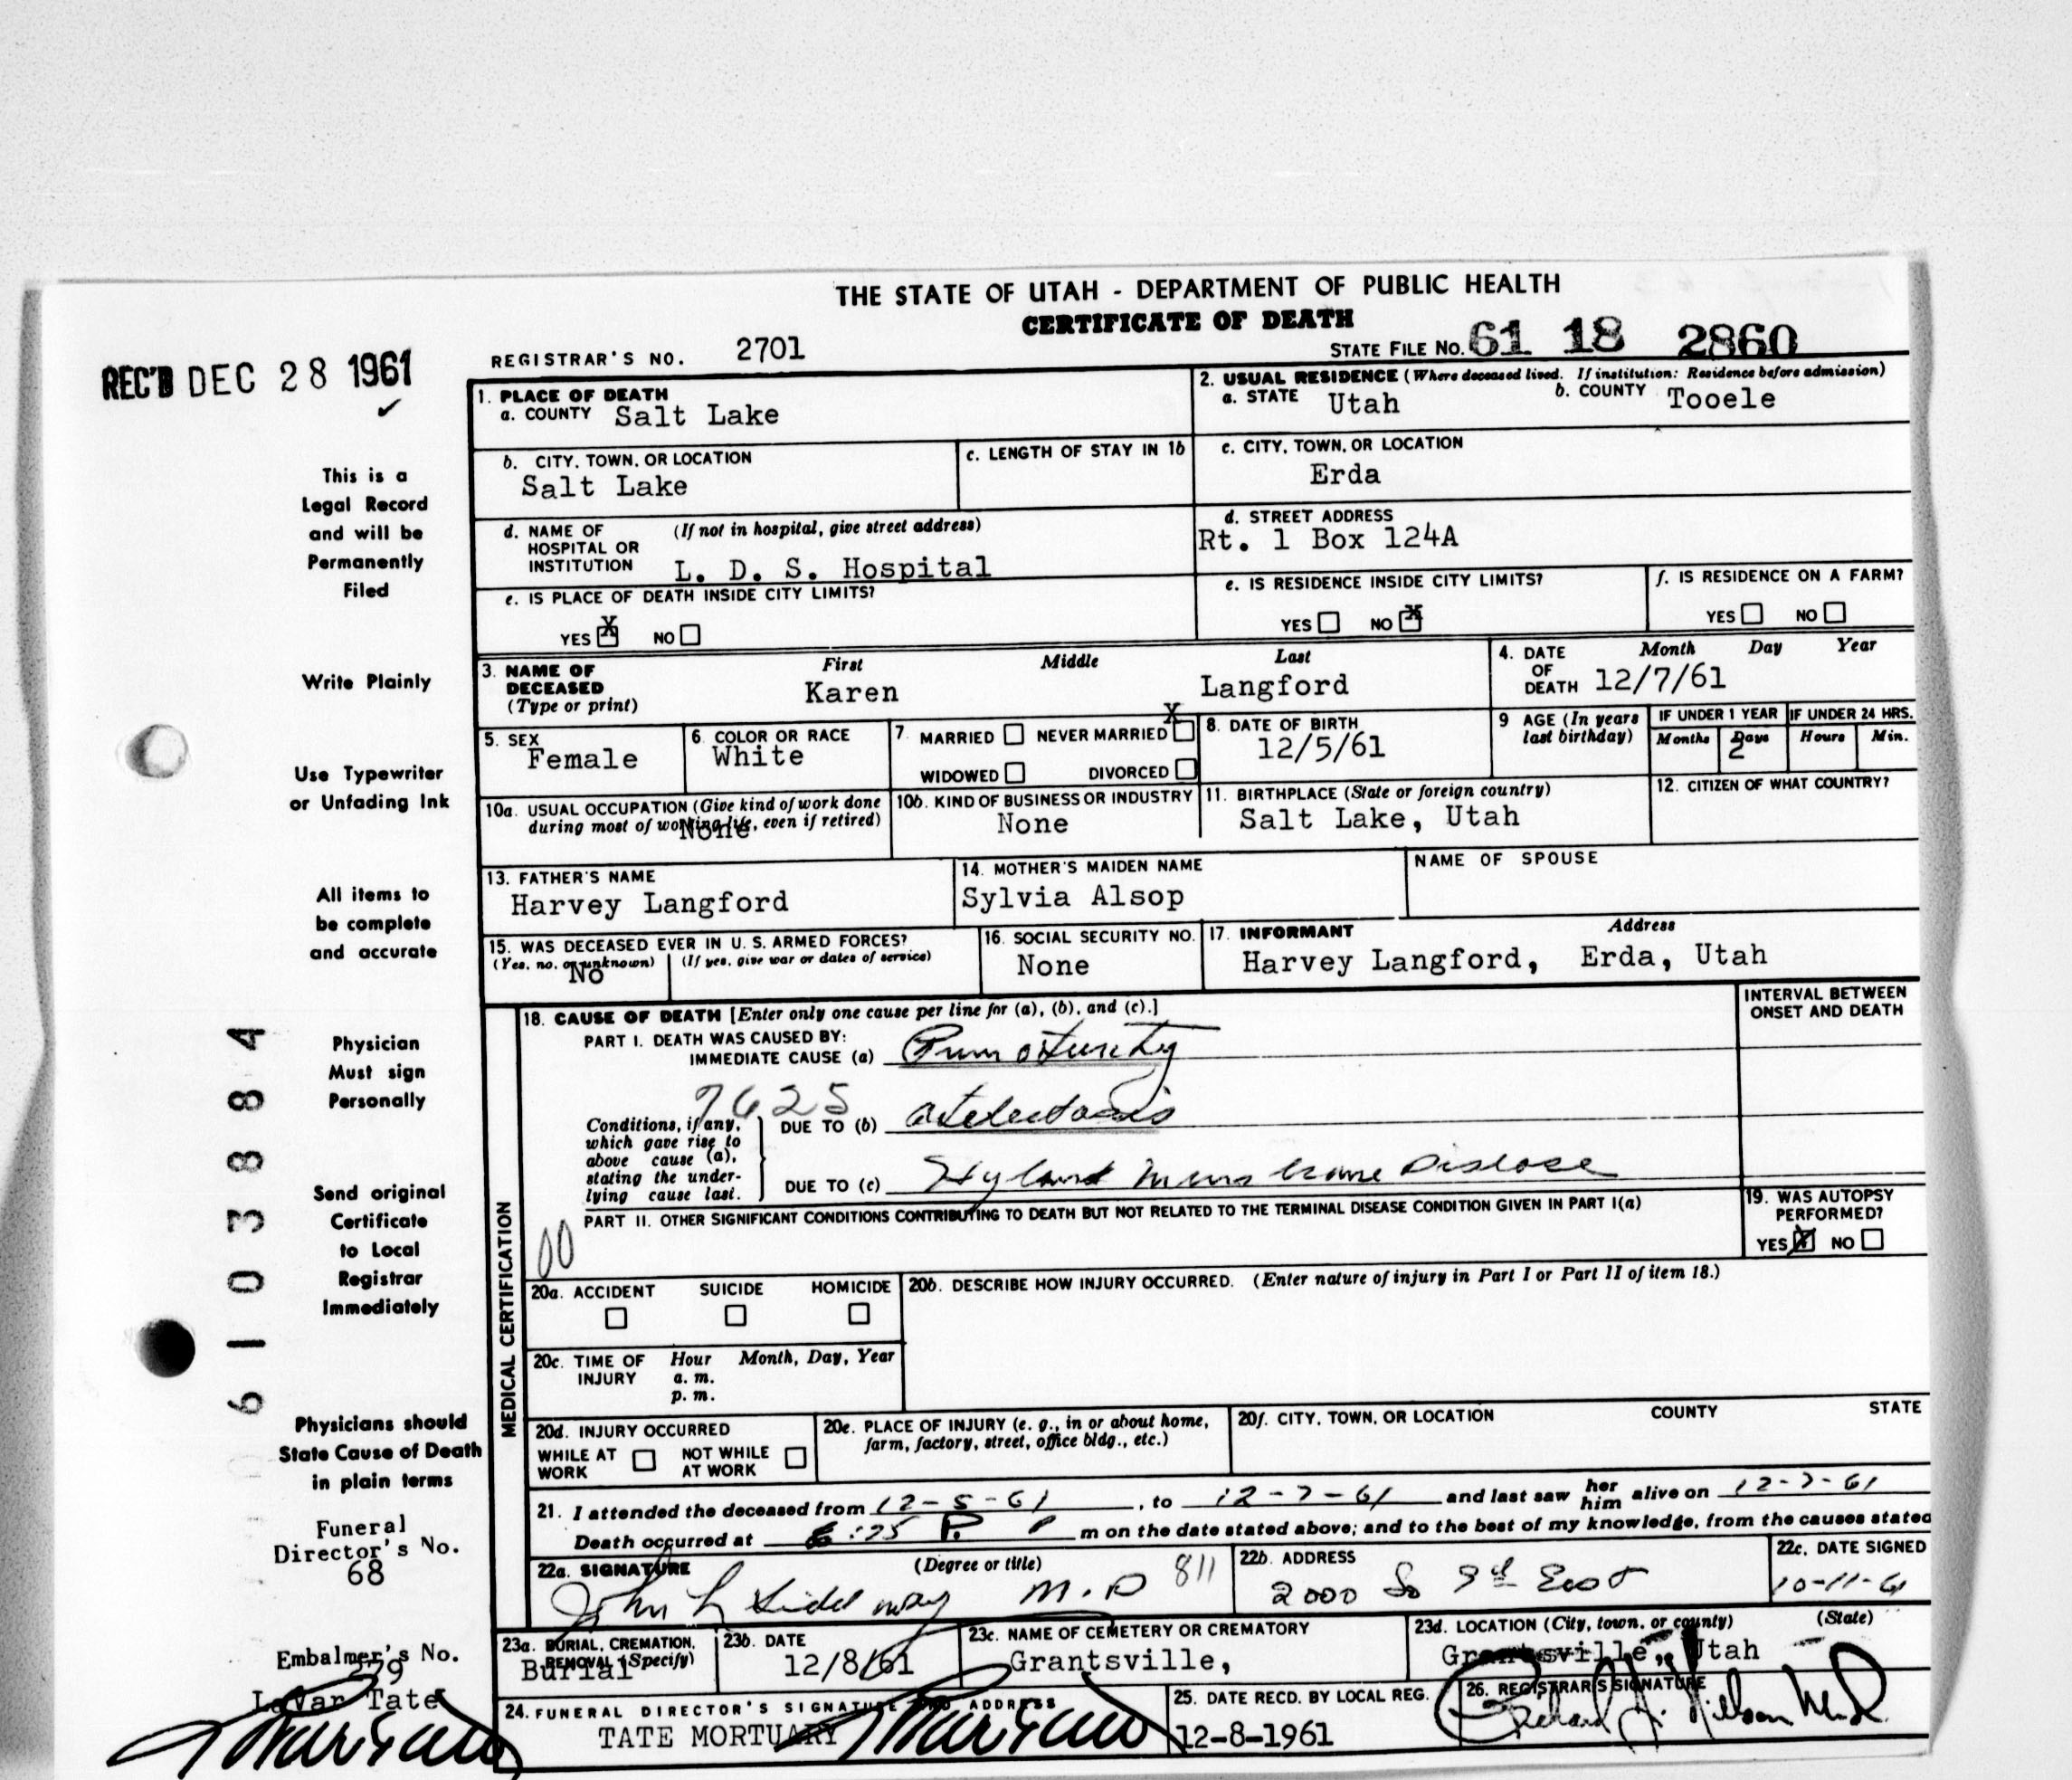 THE STATE OF UTAH - DEPARTMENT OF PUBLIC HEALTH
CERTIFICATE OF DEATH
REC'D DEC 28 1961
REGISTRAR'S NO. 2701
STATE FILE NO. 61 18 2860
1. PLACE OF DEATH
a. COUNTY Salt Lake
2. USUAL RESIDENCE (Where deceased lived. If institution: Residence before admission)
a. STATE Utah b. COUNTY Tooele
b. CITY, TOWN, OR LOCATION
Salt Lake
c. LENGTH OF STAY IN 1b
c. CITY, TOWN, OR LOCATION
Erda
d. NAME OF HOSPITAL OR INSTITUTION (If not in hospital, give street address)
L. D. S. Hospital
d. STREET ADDRESS
Rt. 1 Box 124A
e. IS PLACE OF DEATH INSIDE CITY LIMITS?
YES X NO
e. IS RESIDENCE INSIDE CITY LIMITS?
YES NO X
f. IS RESIDENCE ON A FARM?
YES NO
3. NAME OF DECEASED (Type or print)
First Middle Last
Karen Langford
4. DATE OF DEATH Month Day Year
12/7/61
5. SEX
Female
6. COLOR OR RACE
White
7. MARRIED NEVER MARRIED X
WIDOWED DIVORCED
8. DATE OF BIRTH
12/5/61
9 AGE (In years last birthday)
IF UNDER 1 YEAR IF UNDER 24 HRS.
Months Days Hours Min.
2
10a. USUAL OCCUPATION (Give kind of work done during most of working life, even if retired)
None
10b. KIND OF BUSINESS OR INDUSTRY
None
11. BIRTHPLACE (State or foreign country)
Salt Lake, Utah
12. CITIZEN OF WHAT COUNTRY?
13. FATHER'S NAME
Harvey Langford
14. MOTHER'S MAIDEN NAME
Sylvia Alsop
NAME OF SPOUSE
15. WAS DECEASED EVER IN U. S. ARMED FORCES?
(Yes, no, or unknown) (If yes, give war or dates of service)
No
16. SOCIAL SECURITY NO.
None
17. INFORMANT Address
Harvey Langford, Erda, Utah
MEDICAL CERTIFICATION
18. CAUSE OF DEATH [Enter only one cause per line for (a), (b), and (c).]
INTERVAL BETWEEN ONSET AND DEATH
PART I. DEATH WAS CAUSED BY:
IMMEDIATE CAUSE (a) Prematurity
7625
Conditions, if any, which gave rise to above cause (a), stating the underlying cause last.
DUE TO (b) atelectasis
DUE TO (c) Hyland membrane Disease
PART II. OTHER SIGNIFICANT CONDITIONS CONTRIBUTING TO DEATH BUT NOT RELATED TO THE TERMINAL DISEASE CONDITION GIVEN IN PART I(a)
00
19. WAS AUTOPSY PERFORMED?
YES X NO
20a. ACCIDENT SUICIDE HOMICIDE
20b. DESCRIBE HOW INJURY OCCURRED. (Enter nature of injury in Part I or Part II of item 18.)
20c. TIME OF INJURY Hour Month, Day, Year
a. m.
p. m.
20d. INJURY OCCURRED
WHILE AT WORK NOT WHILE AT WORK
20e. PLACE OF INJURY (e. g., in or about home, farm, factory, street, office bldg., etc.)
20f. CITY, TOWN, OR LOCATION COUNTY STATE
21. I attended the deceased from 12-5-61, to 12-7-61 and last saw her him alive on 12-7-61
Death occurred at 6:25 P. m on the date stated above; and to the best of my knowledge, from the causes stated
22a. SIGNATURE (Degree or title)
John M.D 811
22b. ADDRESS
2000 So 9th East
22c. DATE SIGNED
10-11-61
23a. BURIAL, CREMATION, REMOVAL (Specify)
Burial
23b. DATE
12/8/61
23c. NAME OF CEMETERY OR CREMATORY
Grantsville,
23d. LOCATION (City, town, or county) (State)
Grantsville, Utah
24. FUNERAL DIRECTOR'S SIGNATURE AND ADDRESS
TATE MORTUARY
25. DATE RECD. BY LOCAL REG.
12-8-1961
26. REGISTRAR'S SIGNATURE
This is a
Legal Record
and will be
Permanently
Filed
Write Plainly
Use Typewriter
or Unfading Ink
All items to
be complete
and accurate
Physician
Must sign
Personally
Send original
Certificate
to Local
Registrar
Immediately
Physicians should
State Cause of Death
in plain terms
Funeral
Director's No.
68
Embalmer's No.
279
LaVar Tate
6103884